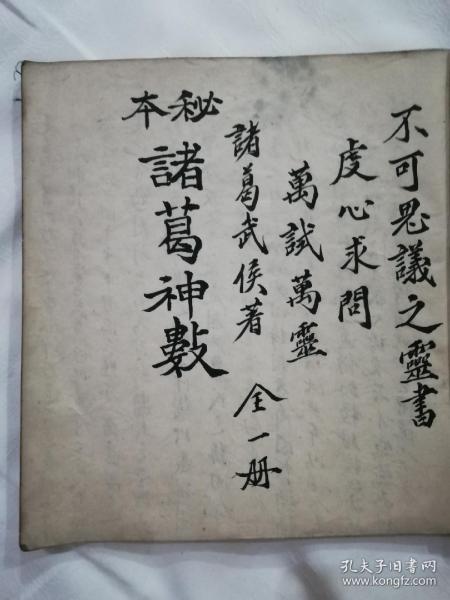 不可思議之靈書
虔心求問
萬試萬靈
諸葛武侯著 全一册
秘本
諸葛神數
孔夫子旧书网
www.kongfz.com